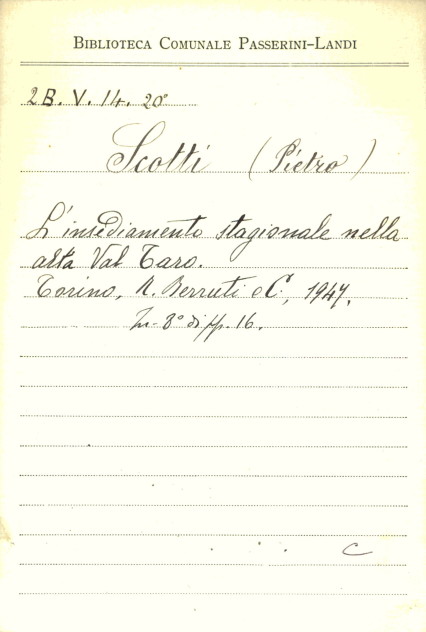 BIBLIOTECA COMUNALE PASSERINI-LANDI
2B. V. 14. 20°
Scotti (Pietro)
L'insediamento stagionale nella
alta Val Taro.
Torino, R. Berruti e C., 1947.
In-8° di pp. 16.
C